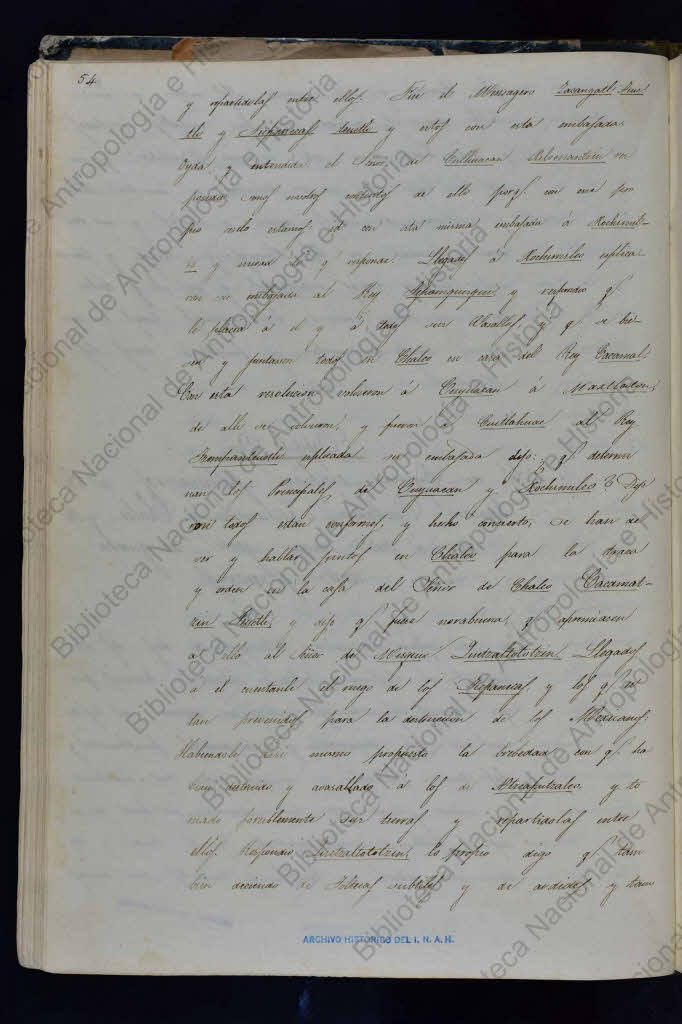 54
y repartidolas entre ellos. Fue el Mensagero Zacangatl Teuc-
tli y Tepanecas teuctli y estos con esta embajada.
Oyda y entendida el Señor de Culhuacan
pondio somos nosotros contentos de ello porq. con ese pro
pio celo estamos id con esta misma embajada á Xochimil-
co y mirad lo q responde. Llegados á Xochimilco esplica-
ron su embajada al Rey y respondio q.
le placia á el y á todos sus Vasallos y q se
sen y juntasen todos en Chalco en casa del Rey Cacamatl
Con esta resolucion volvieron á Cuyuacan á Maxtlaton,
de alli se volvieron, y fueron á Cuitlahuac al Rey
Tzompanteuctli esplicada su embajada dijo: q. determi
nan los Principales de Cuyuacan y Xochimilco? Dije
ron todos estan conformes, y hecho concierto, se han de
ver y hablar juntos en Chalco para la traza
y orden en la casa del Señor de Chalco Cacamat-
zin Teuctli, y dijo q. fuese norabuena, q. apremiasen
a ello al Señor de Mizquic Quetzaltototzin. Llegados
a el cuentanle el ruego de los Tepanecas, y los q. es
tan prevenidos para la destruccion de los Mexicanos.
Habiendole asi mismo propuesto la brebedad con q. ha
bian destruido y avasallado á los de Atzcaputzalco, y to
mado posiblemente sus tierras y repartidolas entre
ellos. Respondió Quetzaltototzin, lo propio digo q. tam
bien deciendo de Toltecas subtiles y de ardides y tam
ARCHIVO HISTORICO DEL I. N. A. H.
Biblioteca Nacional de Antropología e Historia